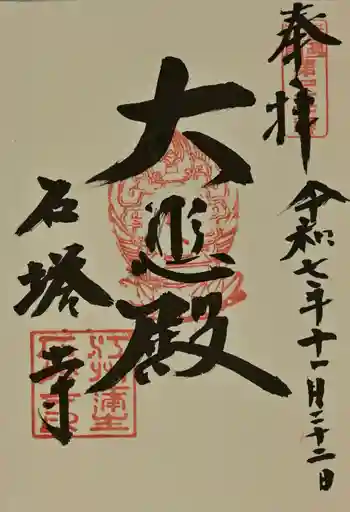 奉拝
令和七年十一月二十二日
大悲殿
石塔寺